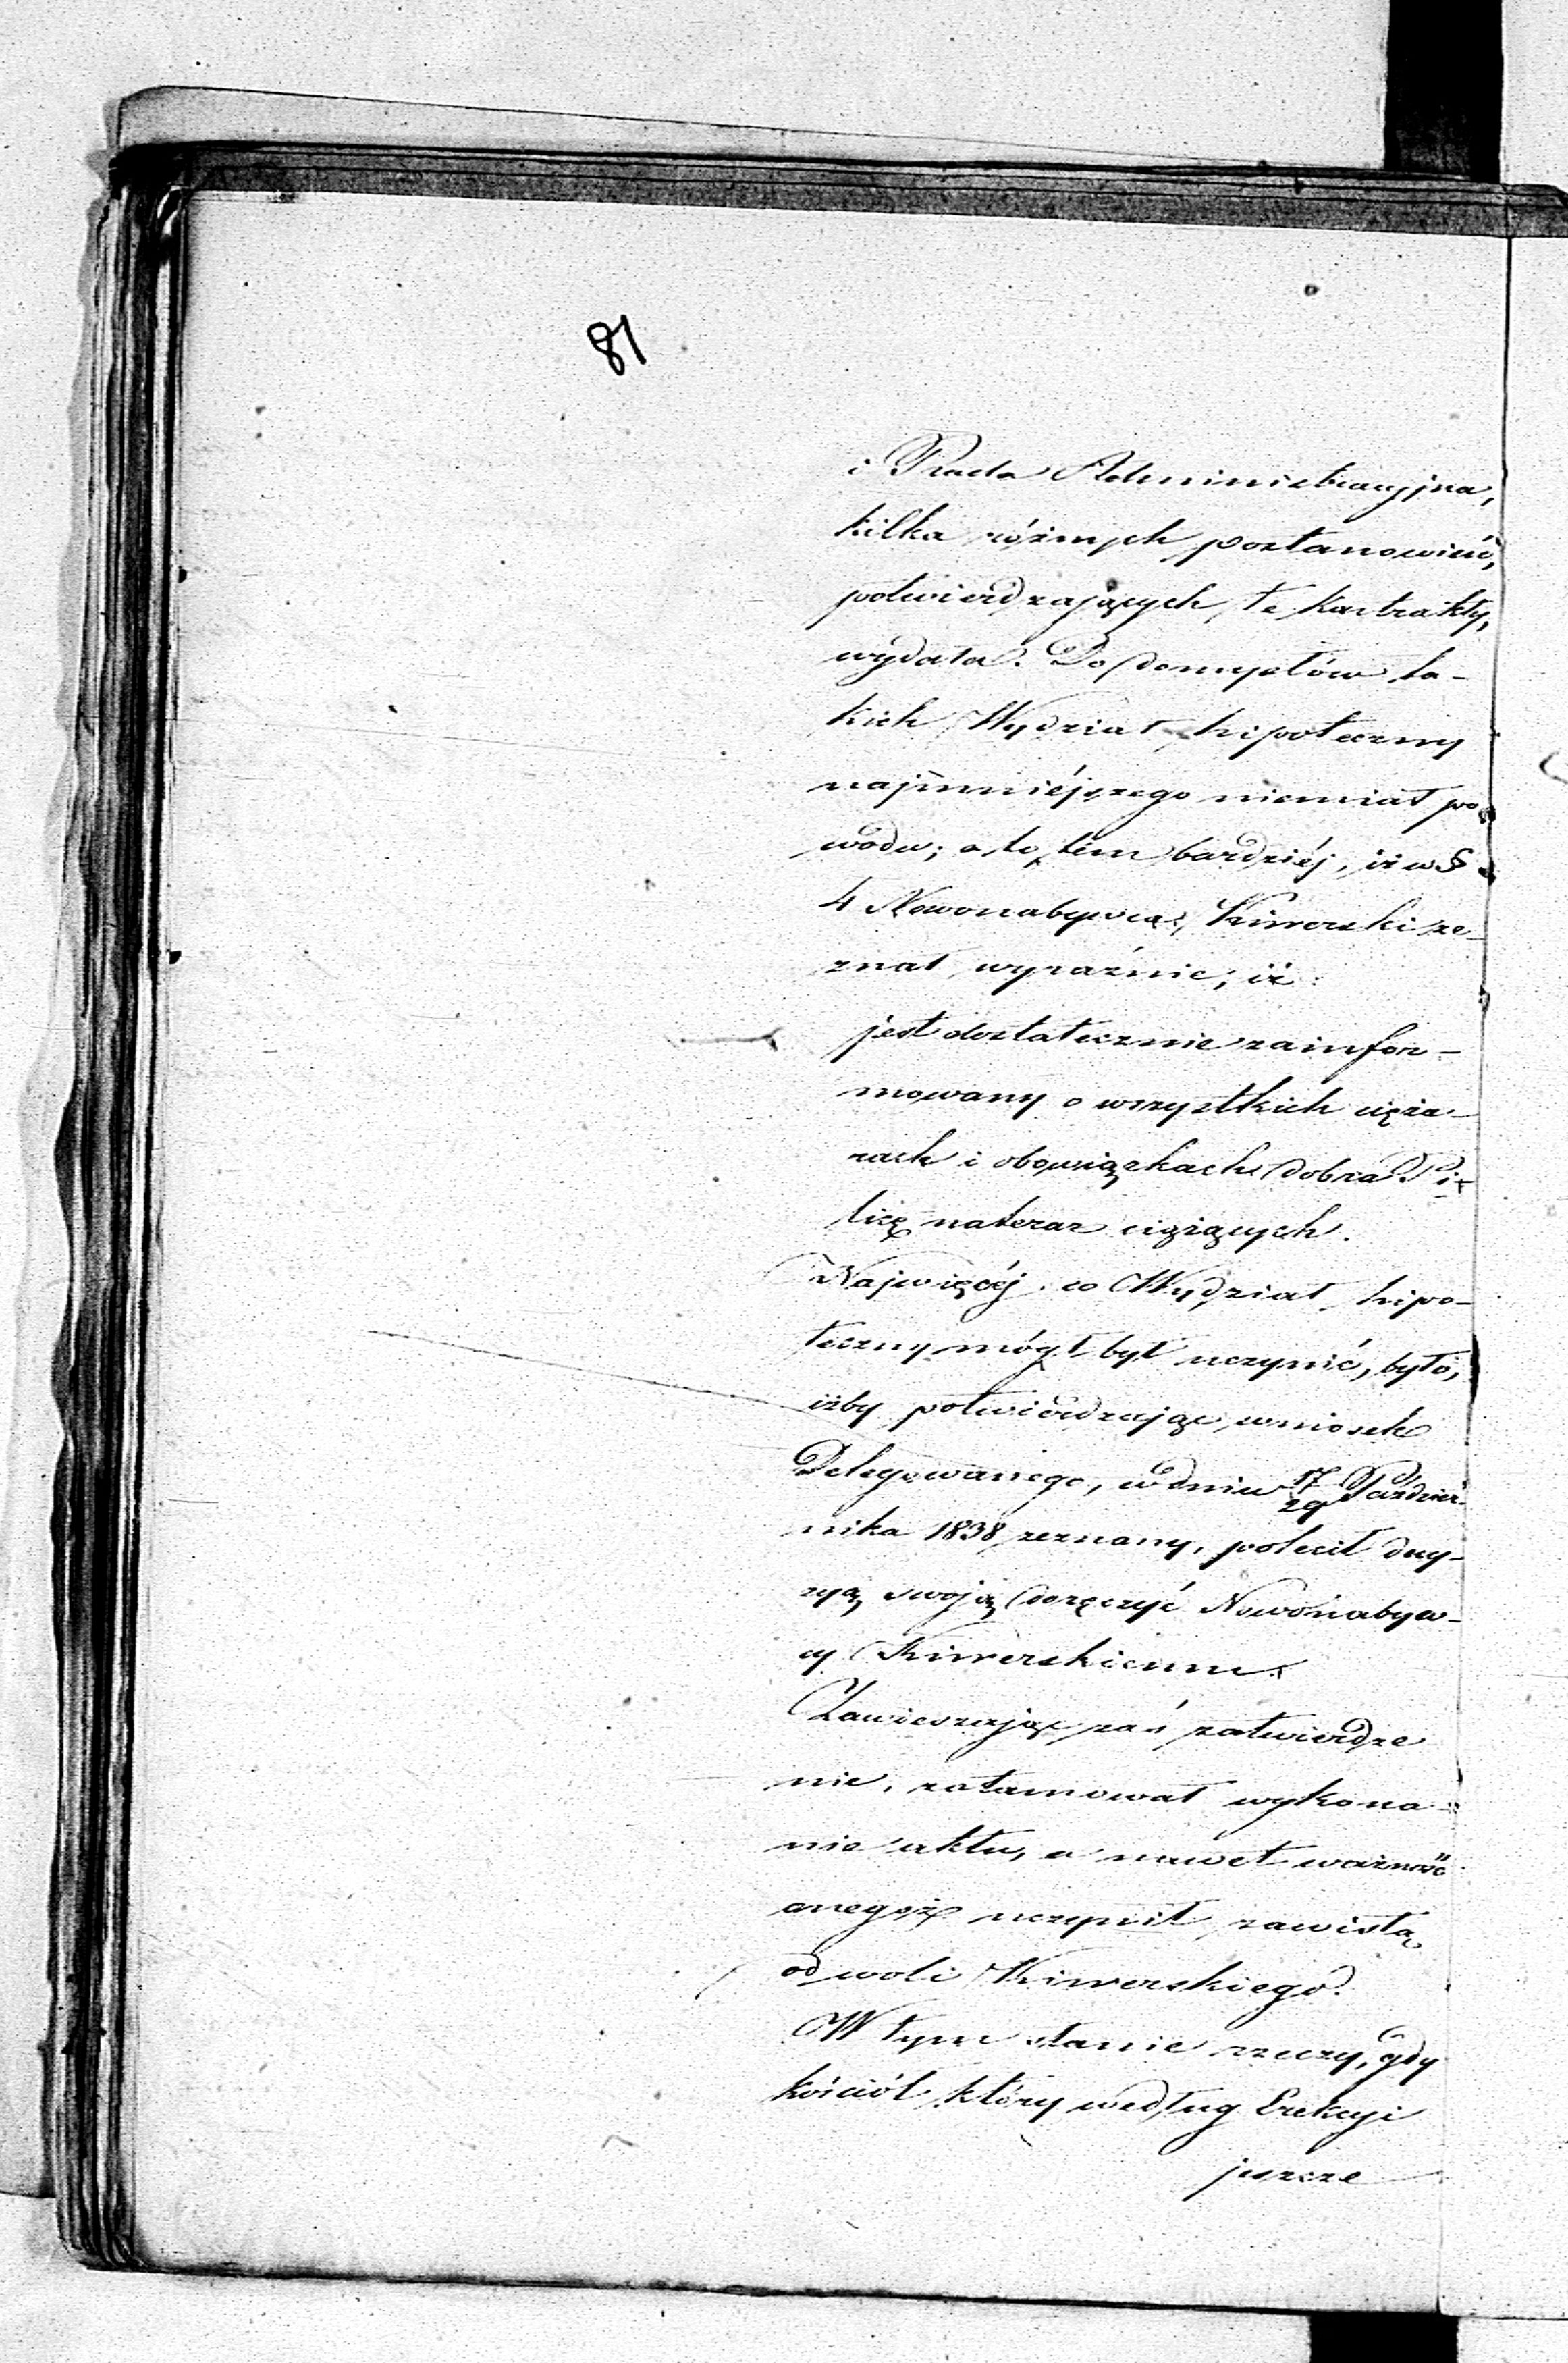 81
i Rada Administracyjna,
kilka różnych postanowień,
potwierdzających te kontrakty,
wydała. Do domysłów ta-
kich Wydział hipoteczny
najmniéjszego niemiał po-
wodu; a to tém bardziéj, iż w §
4 Nowonabywca, Kiwerski ze-
znał wyraźnie, iż:
jest dostatecznie zainfor-
mowany o wszystkich cięża-
rach i obowiązkach dobra Pi-
licę nateraz ciążących.
Najwięcéj co Wydział hipo-
teczny mógł był uczynić, było,
iżby potwierdzając wniosek
Delegowanego, w dniu 17/29 Paździer-
nika 1838 zeznany, polecił decy-
zyą swoją doręczyć Nowonabyw-
cy Kiwerskiemu.
Zawieszając zaś zatwierdze
nie, zatamował wykona-
nie aktu, a nawet ważność
onegoż uczynił zawisłą
od woli Kiwerskiego.
W tym stanie rzeczy, gdy
kościół który według Erekcyi
jeszcze